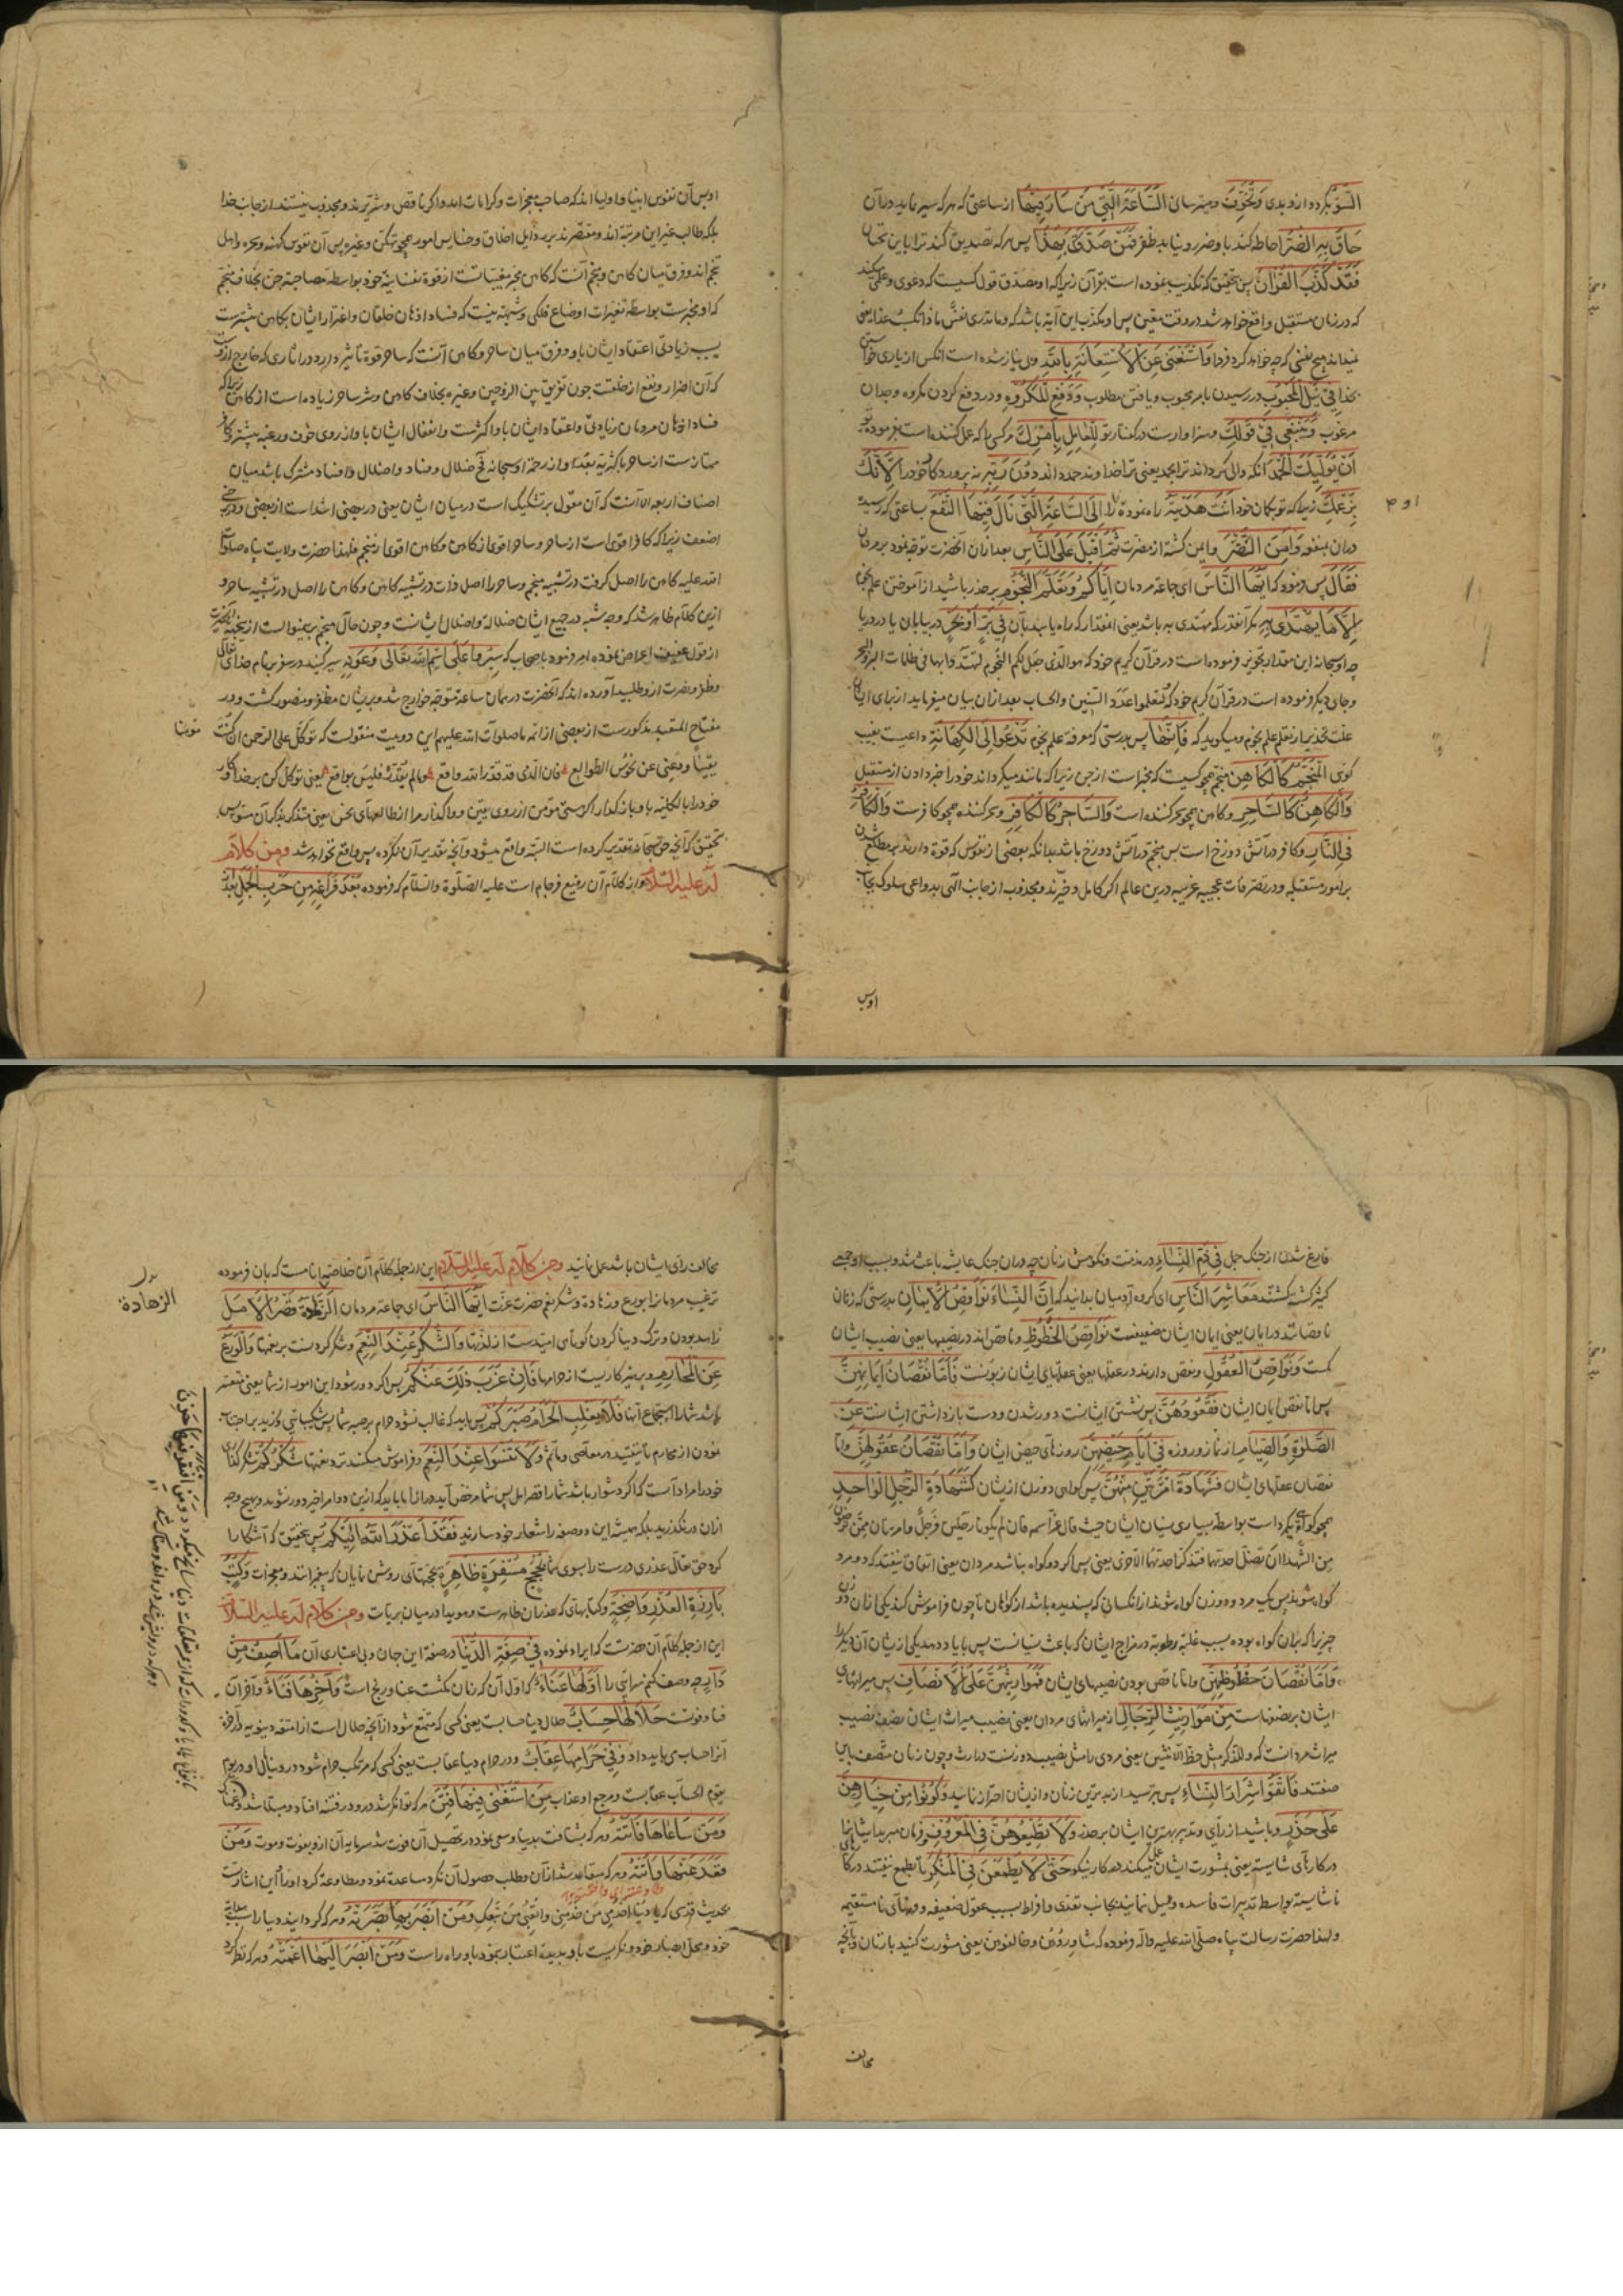 السُّوءُ بگردد ازو بدی وَتُخَوِّفُ ومیترسان السَّاعَةَ الَّتِي مَنْ سَارَ فِيهَا از ساعتی که هر که سیر نماید در آن
حَاقَ بِهِ الضُّرُّ احاطه کند با و ضرر و نیابد ظفر فَمَنْ صَدَّقَكَ بِهَذَا پس هر که تصدیق کند ترا باین سخنان
فَقَدْ كَذَّبَ الْقُرْآنَ پس بتحقیق که تکذیب نموده است بقرآن زیرا که او مصدق قول کسیست که دعوی علم میکند
که در زمان مستقبل واقع خواهد شد در وقت معین پس او مکذب این آیه باشد که وما تدری نفس ماذا تکسب غدا یعنی
نمیداند هیچ نفسی که چه خواهد کرد فردا وَاسْتَغْنَى عَنِ الْاسْتِعَانَةِ بِاللهِ وبی نیاز شده است آنکس از یاری خواستن
بخدا فِي نَيْلِ الْمَحْبُوبِ در رسیدن بامر محبوب و یافتن مطلوب وَدَفْعِ الْمَكْرُوهِ ودر دفع کردن مکروه و وجدان
مرغوب وَيَنْبَغِي فِي قَوْلِكَ وسزاوارست در گفتار تو لِلْعَامِلِ بِأَمْرِكَ مر کسی را که عمل کننده است بفرموده تو
أَنْ يُولِيَكَ الْحَمْدَ آنکه والی گرداند ترا بحمد یعنی ترا خداوند حمد داند دُونَ رَبِّهِ نه پروردگار خود را لِأَنَّكَ
بِزَعْمِكَ زیرا که تو بگمان خود أَنْتَ هَدَيْتَهُ راه نمودهٔ او را إِلَى السَّاعَةِ الَّتِي نَالَ فِيهَا النَّفْعَ بساعتی که رسیده
در آن بمنفعت وَأَمِنَ الضُّرَّ وایمن گشته از مضرت ثُمَّ أَقْبَلَ عَلَى النَّاسِ بعد از آن آنحضرت توجه نمود بر مردمان
فَقَالَ پس فرمود که أَيُّهَا النَّاسُ ای جماعه مردمان إِيَّاكُمْ وَتَعَلُّمَ النُّجُومِ بر حذر باشید از آموختن علم نجوم
إِلَّا مَا يُهْتَدَى بِهِ مگر آنقدر که مهتدی به باشد یعنی آنمقدار که راه یابید بآن فِي بَرٍّ أَوْ بَحْرٍ در بیابان یا در دریا
چه او سبحانه این مقدار تجویز فرموده است در قرآن کریم خود که هو الذی جعل لکم النجوم لتهتدوا بها فی ظلمات البر والبحر
وجای دیگر فرموده است در قرآن کریم خود که لتعلموا عدد السنین والحساب بعد از آن بیان میفرماید از برای ایشان
علت تحذیر از تعلم علم نجوم ومیگوید که فَإِنَّهَا پس بدرستی که معرفة علم نجوم تَدْعُو إِلَى الْكِهَانَةِ داعیست بغیب
گوئی الْمُنَجِّمُ كَالْكَاهِنِ منجم همچو کسیست که مخبرست از جن زیرا که مانند میگرداند خود را خبر دادن از مستقبل
وَالْكَاهِنُ كَالسَّاحِرِ وکاهن همچو سحر کننده است وَالسَّاحِرُ كَالْكَافِرِ وسحر کننده همچو کافرست وَالْكَافِرُ
فِي النَّارِ وکافر در آتش دوزخ است پس منجم در آتش دوزخ باشد بدانکه بعضی از نفوس که قوة دارند بر مطلع شدن
بر امور مستقبله ودر تصرفات عجیبه غریبه درین عالم اگر کامل و خیرند ومجذوب از جانب الهی بدواعی سلوک بجانب
اوپس
او پس آن نفوس انبیا واولیا اند که صاحب معجزات وکرامات اند واگر ناقص وشریرند ومجذوب نیستند از جانب خدا
بلکه طالب غیر این مرتبه اند ومقتصرند بر رذایل اخلاق وخسایس امور همچو تهکن وغیره پس آن نفوس کهنه وسحره واهل
تنجم اند وفرق میان کاهن ومنجم آنست که کاهن مخبر مغیباتست از قوة نفسانیه خود بواسطه مصاحبة جن بخلاف منجم
که او مخبرست بواسطه تغیرات اوضاع فلکی وشبهه نیست که فساد اذهان خلقان واغترار ایشان بکاهن بیشترست
بسبب زیادتی اعتقاد ایشان باو وفرق میان ساحر وکاهن آنست که ساحر قوة تاثیر دارد در اثاری که خارج از وست
که آن اضرار ونفع از خلقست چون تفریق بین الزوجین وغیره بخلاف کاهن وشر ساحر زیاده است از کاهن زیرا که
فساد اذهان مردمان بزیادتی واعتقاد ایشان باو اکثرست وانفعال ایشان باو از روی خوف ورغبه بیشتر وکافر
ممتازست از ساحر باکثریة بعد او از رحمة او سبحانه فح ضلال وفساد واضلال وافساد مشترک باشد میان
اصناف اربعه الا آنست که آن مقول بر تشکیک است در میان ایشان یعنی در بعضی اشد است از بعضی ودر بعضی
اضعف زیرا که کافر اقوی است از ساحر وساحر اقوی از کاهن وکاهن اقوی از منجم فلهذا حضرت ولایت پناه صلوات
الله علیه کاهن را اصل گرفت در تشبیه منجم وساحر را اصل ذات در تشبیه کاهن وکافر را اصل در تشبیه ساحر و
ازین کلام ظاهر شد که وجه شبه در جمیع ایشان ضلالة واضلال ایشانست وچون حال منجم برینمنوالست از ینجهة آنحضرت
از قول عفیف اعراض نموده امر فرمود باصحاب که سِيرُوا عَلَى اسْمِ اللهِ تَعَالَى وَعَوْنِهِ سیر کنید در سفر بنام خدای تعالی
وظفر ونصرت ازو طلبید آورده اند که آنحضرت در همان ساعة متوجه خوارج شد وبر یشان مظفر ومنصور گشت ودر
مفتاح المتعبد مذکورست از بعضی از ائمه ما صلوات الله علیهم این دو بیت منقولست که توکل علی الرحمن ان کنت
مؤمنا
یقینا ودعنی عن نحوس الطوالع فان الذی قد قدر الله واقع وما لم یقدّره فلیس بواقع یعنی توکل کن بر خدا وکار
خود را بالکلیه باو بازگذار اگر هستی مؤمن از روی یقین وواگذار مرا از طالعهای نحس یعنی متذکر بذکر آن مشو پس
بتحقیق که آنچه حق سبحانه تقدیر کرده است البته واقع میشود وآنچه تقدیر آن نکرده پس واقع نخواهد شد ومن کلام
له علیه السلام واز کلام آن رفیع فرجام است علیه الصلوة والسلام که فرموده بَعْدَ فَرَاغِهِ مِنْ حَرْبِ الْجَمَلِ بعد
فارغ شدن از جنک جمل فِي ذَمِّ النِّسَاءِ در مذمت ونکوهش زنان چه در آن جنک عایشه باعث شد وبسبب او جمعی
کثیر کشته گشتند مَعَاشِرَ النَّاسِ ای گروه آدمیان بدانید که إِنَّ النِّسَاءَ نَوَاقِصُ الْإِيمَانِ بدرستی که زنان
ناقصانند در ایمان یعنی ایمان ایشان ضعیفست نَوَاقِصُ الْحُظُوظِ وناقص اند در نصیبها یعنی نصیب ایشان
کمست وَنَوَاقِصُ الْعُقُولِ ونقص دارند در عقلها یعنی عقلهای ایشان زبونست فَأَمَّا نُقْصَانُ إِيمَانِهِنَّ
پس اما نقص ایمان ایشان فَقُعُودُهُنَّ پس نشستن ایشانست دور شدن ودست بازداشتن ایشانست عَنِ
الصَّلٰوةِ وَالصِّيَامِ از نماز وروزه فِي أَيَّامِ حَيْضِهِنَّ روزهای حیض ایشان وَأَمَّا نُقْصَانُ عُقُولِهِنَّ واما
نقصان عقلهای ایشان فَشَهَادَةُ امْرَأَتَيْنِ مِنْهُنَّ پس گواهی دو زن از یشان كَشَهَادَةِ الرَّجُلِ الْوَاحِدِ
همچو گواهی یکمرد است بواسطه بسیاری نسیان ایشان حیث قال عز اسمه فان لم یکونا رجلین فرجل وامرأتان ممن ترضون
من الشهداء ان تضل احدیهما فتذکر احدیهما الاخری یعنی پس اگر دو گواه نباشد مردان یعنی اتفاق نیفتد که دو مرد
گواه شوند پس یک مرد ودو زن گواه شوند از آنکسانی که پسندیده باشد از گواهان تا چون فراموش کند یکی از آن دو زن
چیزیرا که بر آن گواه بوده بسبب غلبه رطوبة در مزاج ایشان که باعث نسیانست پس بیاد دهد یکی از یشان آن دیگر را
وَأَمَّا نُقْصَانُ حُظُوظِهِنَّ واما ناقص بودن نصیبهای ایشان فَمَوَارِيثُهُنَّ عَلَى الْأَنْصَافِ پس میراثهای
ایشان بر نصفهاست مِنْ مَوَارِيثِ الرِّجَالِ از میراثهای مردان یعنی نصیب میراث ایشان نصف نصیب
میراث مردانست که وللذکر مثل حظ الانثیین یعنی مردی را مثل نصیب دو زنست در ارث وچون زنان متصف باین
صفتند فَاتَّقُوا شِرَارَ النِّسَاءِ پس بترسید از بدترین زنان واز یشان احتراز نمایید وَكُونُوا مِنْ خِيَارِهِنَّ
عَلَى حَذَرٍ وباشید از رأی وتدبیر بهترین ایشان بر حذر وَلَا تُطِيعُوهُنَّ فِي الْمَعْرُوفِ وفرمان مبرید ایشانرا
در کارهای شایسته یعنی بمشورت ایشان عمل میکنید در کار نیکو حَتَّى لَا يَطْمَعْنَ فِي الْمُنْكَرِ تا بطمع نیفتند در کارهای
ناشایسته بواسطه تدبیرات فاسده ومیل نمایند بجانب تعدی وافراط بسبب عقول ضعیفه وفهمهای نامستقیمه
ولهذا حضرت رسالت پناه صلی الله علیه وآله فرموده که شاوروهن وخالفوهن یعنی مشورت کنید بازنان وآنچه
مخالف
مخالف رای ایشان باشد عمل نمائید ومن کلام له علیه السلام این از جمله کلام آن خلاصه انامست که بآن فرموده
ترغیب مردمانرا بورع وزهادة وشکر نعم حضرت عزت أَيُّهَا النَّاسُ ای جماعه مردمان الزَّهَادَةُ قِصَرُ الْأَمَلِ
الزهادة
زاهد بودن وترک دنیا کردن کوتاهی امیدست از لذتها وَالشُّكْرُ عِنْدَ النِّعَمِ وشکر کردنست بر نعمتها وَالْوَرَعُ
عَنِ الْمَحَارِمِ وپرهیزکاریست از حرامها فَإِنْ عَزَبَ ذٰلِكَ عَنْكُمْ پس اگر دور شود این امور از شما یعنی متعذر
باشد شما را اجتماع آنها فَلَا يَغْلِبِ الْحَرَامُ صَبْرَكُمْ پس باید که غالب نشود حرام بر صبر شما پس شکیبائی ورزید بر اجتناب
نمودن از محارم تا نیفتید در معاصی ومآثم وَلَا تَنْسَوْا عِنْدَ النِّعَمِ وفراموش مکنید نزد نعمتها شُكْرَكُمْ شکرگذاری
خود را مراد آنست که اگر دشوار باشد شما را قصر امل پس شما مرخص آیید در آن اما باید که ازین دو امر اخیر دور نشوید وبهیچ وجه
از آن در نگذرید بلکه همیشه این دو صفة را شعار خود سازید فَقَدْ أَعْذَرَ اللهُ إِلَيْكُمْ پس بتحقیق که آشکارا
کرد حق تعالی عذری درست را بسوی شما بِحُجَجٍ مُسْفِرَةٍ ظَاهِرَةٍ بحجتهای روشن نمایان که پیغمبرانند ومعجزات وَكُتُبٍ
بَارِزَةِ الْعُذْرِ وَاضِحَةٍ وکتابهای که عذر آن ظاهرست وهویدا در میان بریات ومن کلام له علیه السلام
این از جمله کلام آن حضرتست که ایراد نموده فِي صِفَةِ الدُّنْيَا در صفة این جهان وبی اعتباری آن مَا أَصِفُ مِنْ
دَارٍ چه وصف کنم سرایی را أَوَّلُهَا عَنَاءٌ که اول آن که زمان نکثست عنا ورنج است وَآخِرُهَا فَنَاءٌ وآخر آن
فنا وفوت فِي حَلَالِهَا حِسَابٌ در حلال دنیا حسابست یعنی کسی که متمتع شود از آنچه حلال است از امتعه دنیویه در آخرة
آنرا حساب می باید داد وَفِي حَرَامِهَا عِقَابٌ ودر حرام دنیا عقابست یعنی کسی که مرتکب حرام شود در دنیا اورا در یوم
یقوم الحساب عقابست ومرجع او عذاب مَنِ اسْتَغْنَى فِيهَا فُتِنَ هر که توانگر شد درو در فتنه افتاد ومبتلا شد
وَمَنْ سَاعَاهَا فَاتَتْهُ وهر که بشتافت بدنیا وسعی نمود در تحصیل آن فوت شد سرمایه آن ازو بفوت وموت وَمَنْ
قَعَدَ عَنْهَا وَاتَتْهُ وهر که متقاعد شد از آن وطلب حصول آن نکرد مساعدة نمود ومطاوعة کرد اورا این اشارتست
بحدیث قدسی که یا دنیا اخدمی من خدمنی واتعبی من تبعک وَمَنْ أَبْصَرَ بِهَا بَصَّرَتْهُ وهر که گردانید دنیا را سبب هدایة
خود ومحل ابصار خود ونگریست باو بدیده اعتبار نمود باو راه راست وَمَنْ أَبْصَرَ إِلَيْهَا أَعْمَتْهُ وهر که نظر کرد